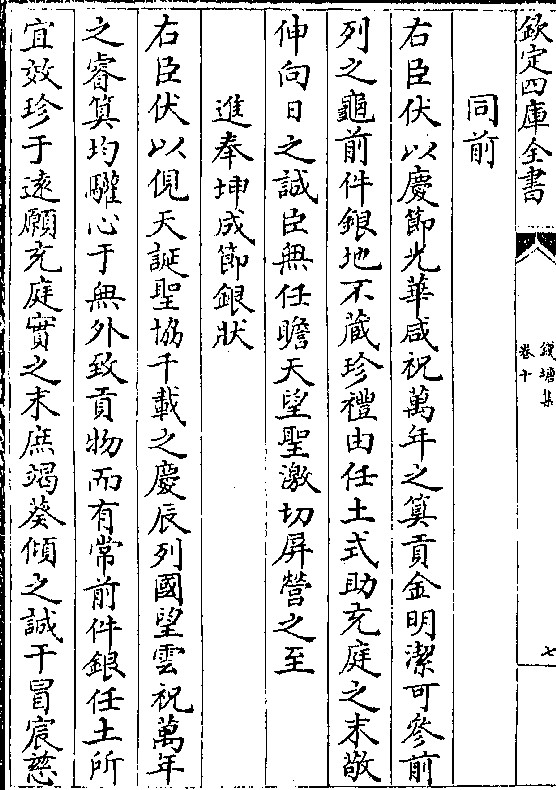 欽定四庫全書
錢塘集
卷十
七
同前
右臣伏以慶節光華咸祝萬年之筭貢金明潔可參前
列之龜前件銀地不藏珍禮由任土式助充庭之末敬
伸向日之誠臣無任瞻天望聖激切屏營之至
進奉坤成節銀狀
右臣伏以俔天誕聖協千載之慶辰列國望雲祝萬年
之睿筭均驩心于無外致貢物而有常前件銀任土所
宜效珍于遠願充庭實之末庶竭葵傾之誠干冒宸慈